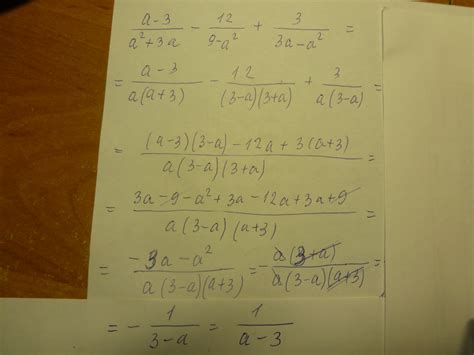 (a-3)/(a²+3a) - 12/(9-a²) + 3/(3a-a²) =
= (a-3)/(a(a+3)) - 12/((3-a)(3+a)) + 3/(a(3-a)) =
= ((a-3)(3-a)-12a+3(a+3))/(a(3-a)(3+a)) =
= (3a-9-a²+3a-12a+3a+9)/(a(3-a)(a+3)) =
= (-3a-a²)/(a(3-a)(a+3)) = -(a(3+a))/(a(3-a)(a+3)) =
= - 1/(3-a) = 1/(a-3)